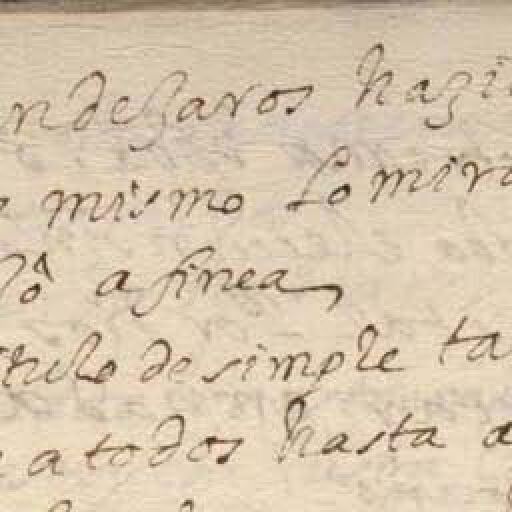 ndeharos hazi
mismo Lo mira
lô afinea
itulo de simple ta
a todos hasta a